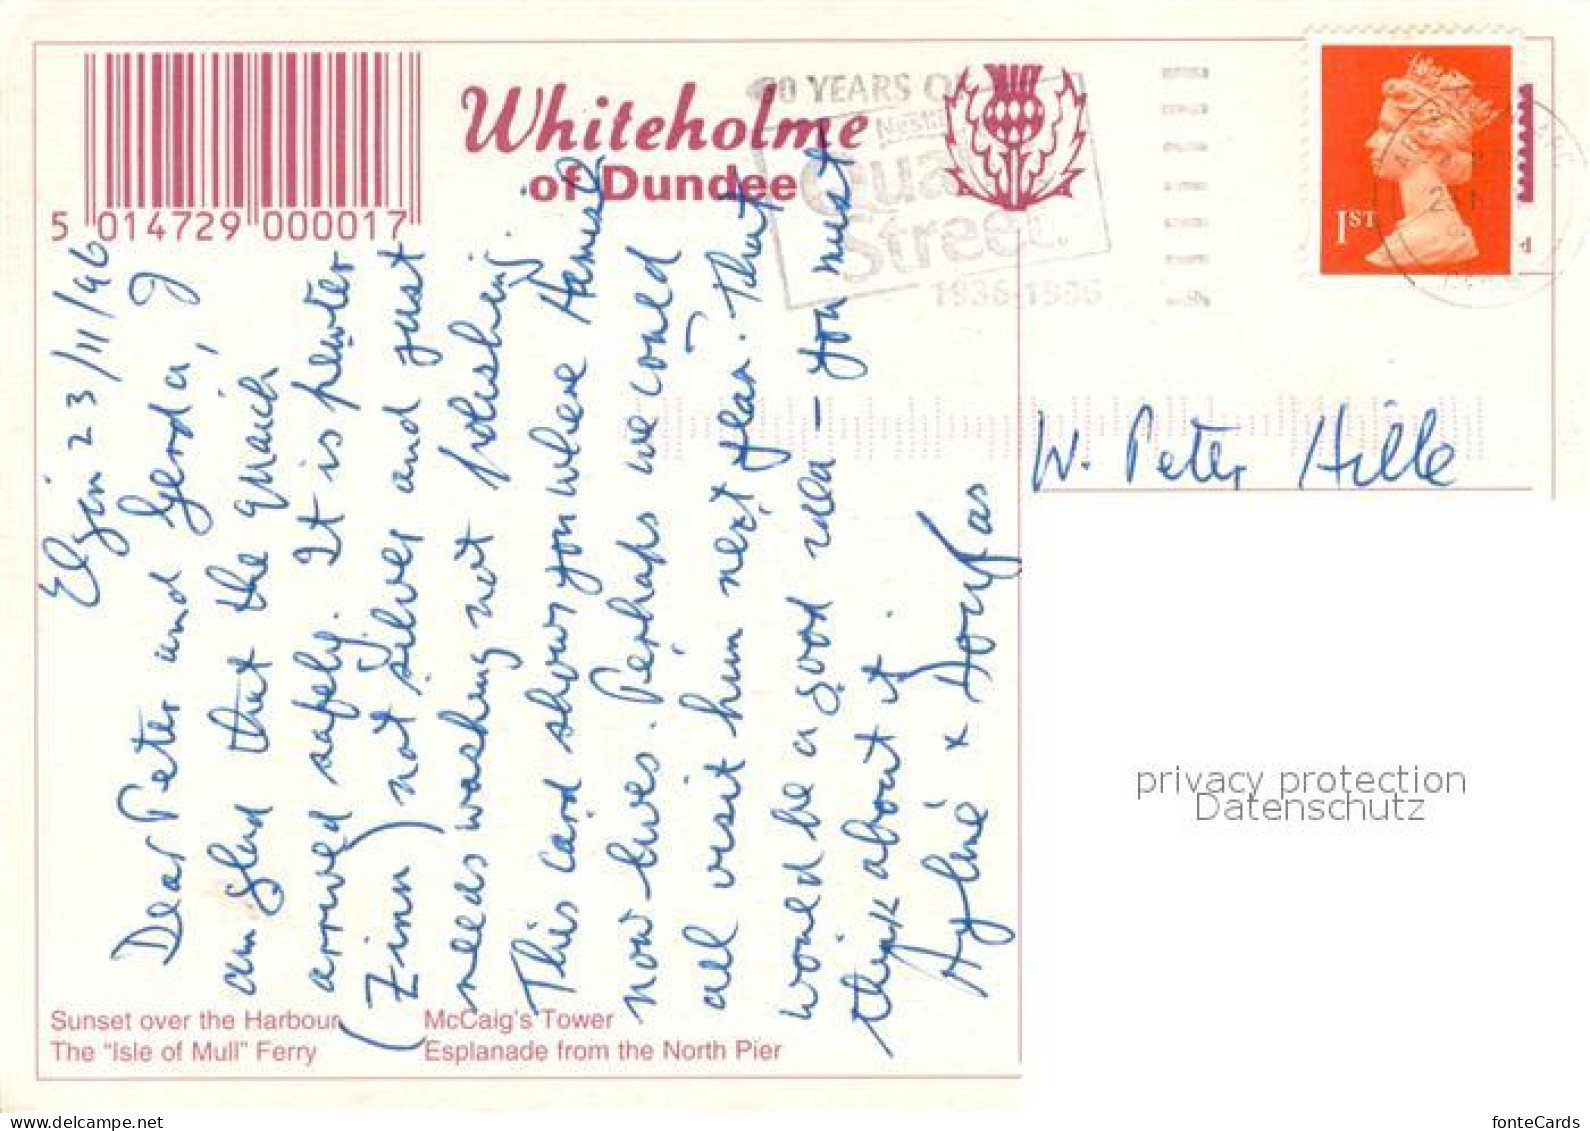 5 014729 000017
Whiteholme
of Dundee
60 YEARS OF
Nestlé
Quality
Street
1936-1996
1ST
Elgin 23/11/96
Dear Peter and Gerda, I
am glad that the quaich
arrived safely. It is pewter
(Zinn) not silver and just
needs washing not polishing.
This card shows you where Hamish
now lives. Perhaps we could
all visit him next year. That
would be a good idea – you must
think about it.
Ayliné + Douglas
W. Peter Hille
Sunset over the Harbour
McCaig's Tower
The "Isle of Mull" Ferry
Esplanade from the North Pier
privacy protection
Datenschutz
www.delcampe.net
fonteCards